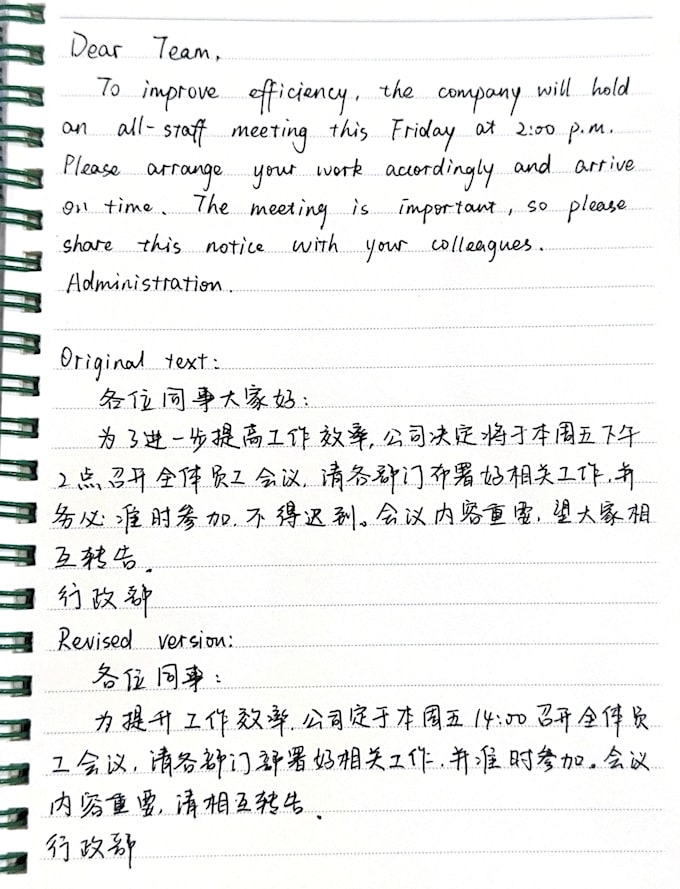 Dear Team,
To improve efficiency, the company will hold
an all-staff meeting this Friday at 2:00 p.m.
Please arrange your work accordingly and arrive
on time. The meeting is important, so please
share this notice with your colleagues.
Administration.
Original text:
各位同事大家好:
为了进一步提高工作效率,公司决定将于本周五下午
2点召开全体员工会议,请各部门布署好相关工作,并
务必准时参加,不得迟到。会议内容重要,望大家相
互转告。
行政部
Revised version:
各位同事:
为提升工作效率,公司定于本周五14:00召开全体员
工会议,请各部门部署好相关工作,并准时参加。会议
内容重要,请相互转告。
行政部